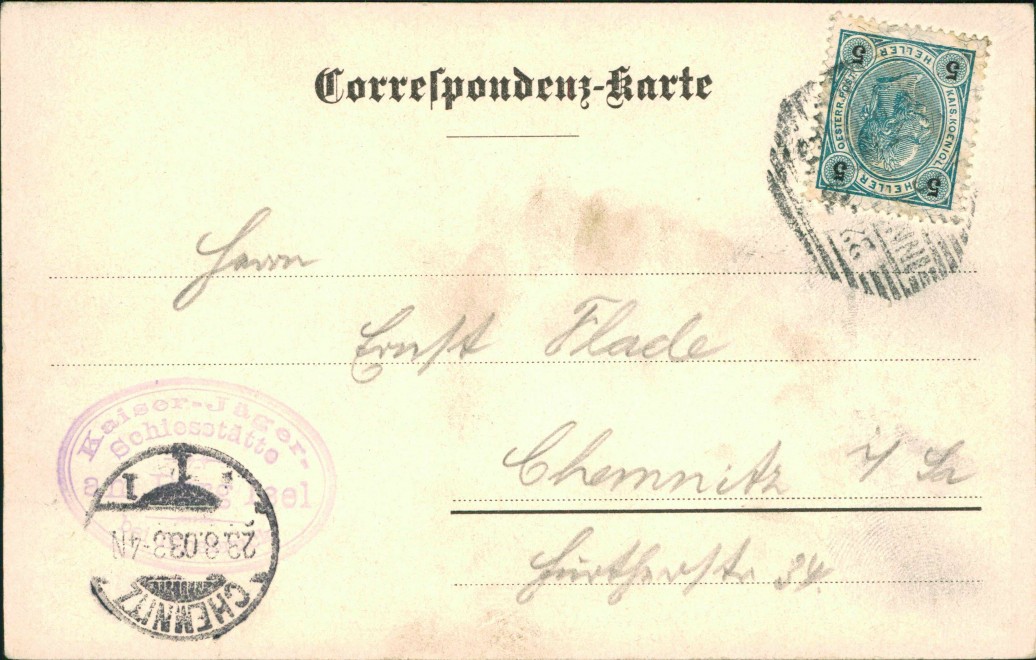 Correspondenz-Karte
5 HELLER 5
OESTERR. POST KAIS. KOENIGL.
5 HELLER 5
Herrn
Ernst Flade
Chemnitz i/Sa
Fürtherstr 34
Kaiser-Jäger-
Schiesstätte
am Berg Isel
1 1 1
29.8.03 3-4N
CHEMNITZ